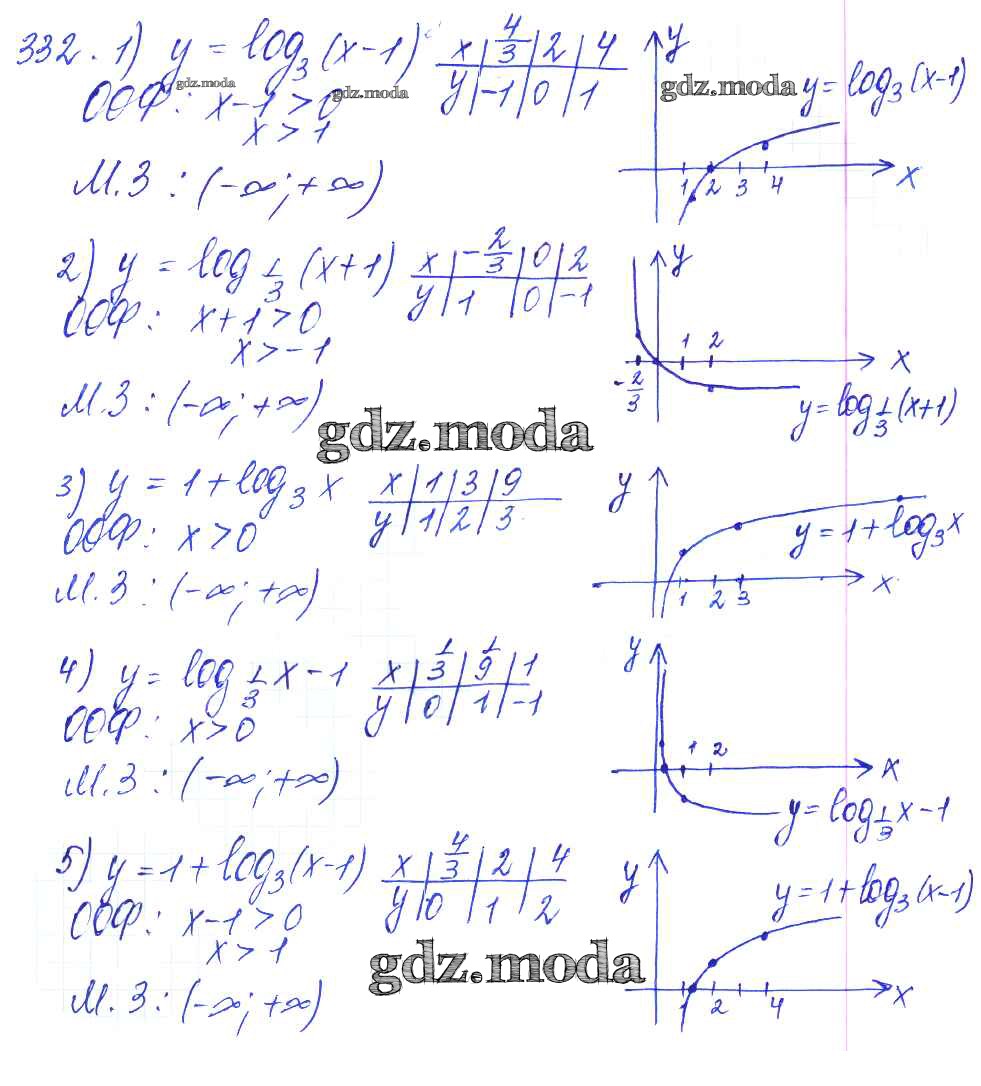 332. 1) y = log₃(x-1) x | 4/3 | 2 | 4
y | -1 | 0 | 1
ООФ: x-1>0
x>1
М.З : (-∞;+∞)
gdz.moda gdz.moda gdz.moda
y y=log₃(x-1)
1 2 3 4 x
2) y = log_{1/3}(x+1) x | -2/3 | 0 | 2
y | 1 | 0 | -1
ООФ: x+1>0
x>-1
М.З : (-∞;+∞)
y
1 2 x
-2/3
y=log_{1/3}(x+1)
gdz.moda
3) y = 1+log₃x x | 1 | 3 | 9
y | 1 | 2 | 3
ООФ: x>0
М.З : (-∞;+∞)
y
y=1+log₃x
1 2 3 x
4) y = log_{1/3}x-1 x | 1/3 | 1/9 | 1
y | 0 | 1 | -1
ООФ: x>0
М.З : (-∞;+∞)
y
1 2 x
y=log_{1/3}x-1
5) y=1+log₃(x-1) x | 4/3 | 2 | 4
y | 0 | 1 | 2
ООФ: x-1>0
x>1
gdz.moda
М.З : (-∞;+∞)
y y=1+log₃(x-1)
1 2 4 x